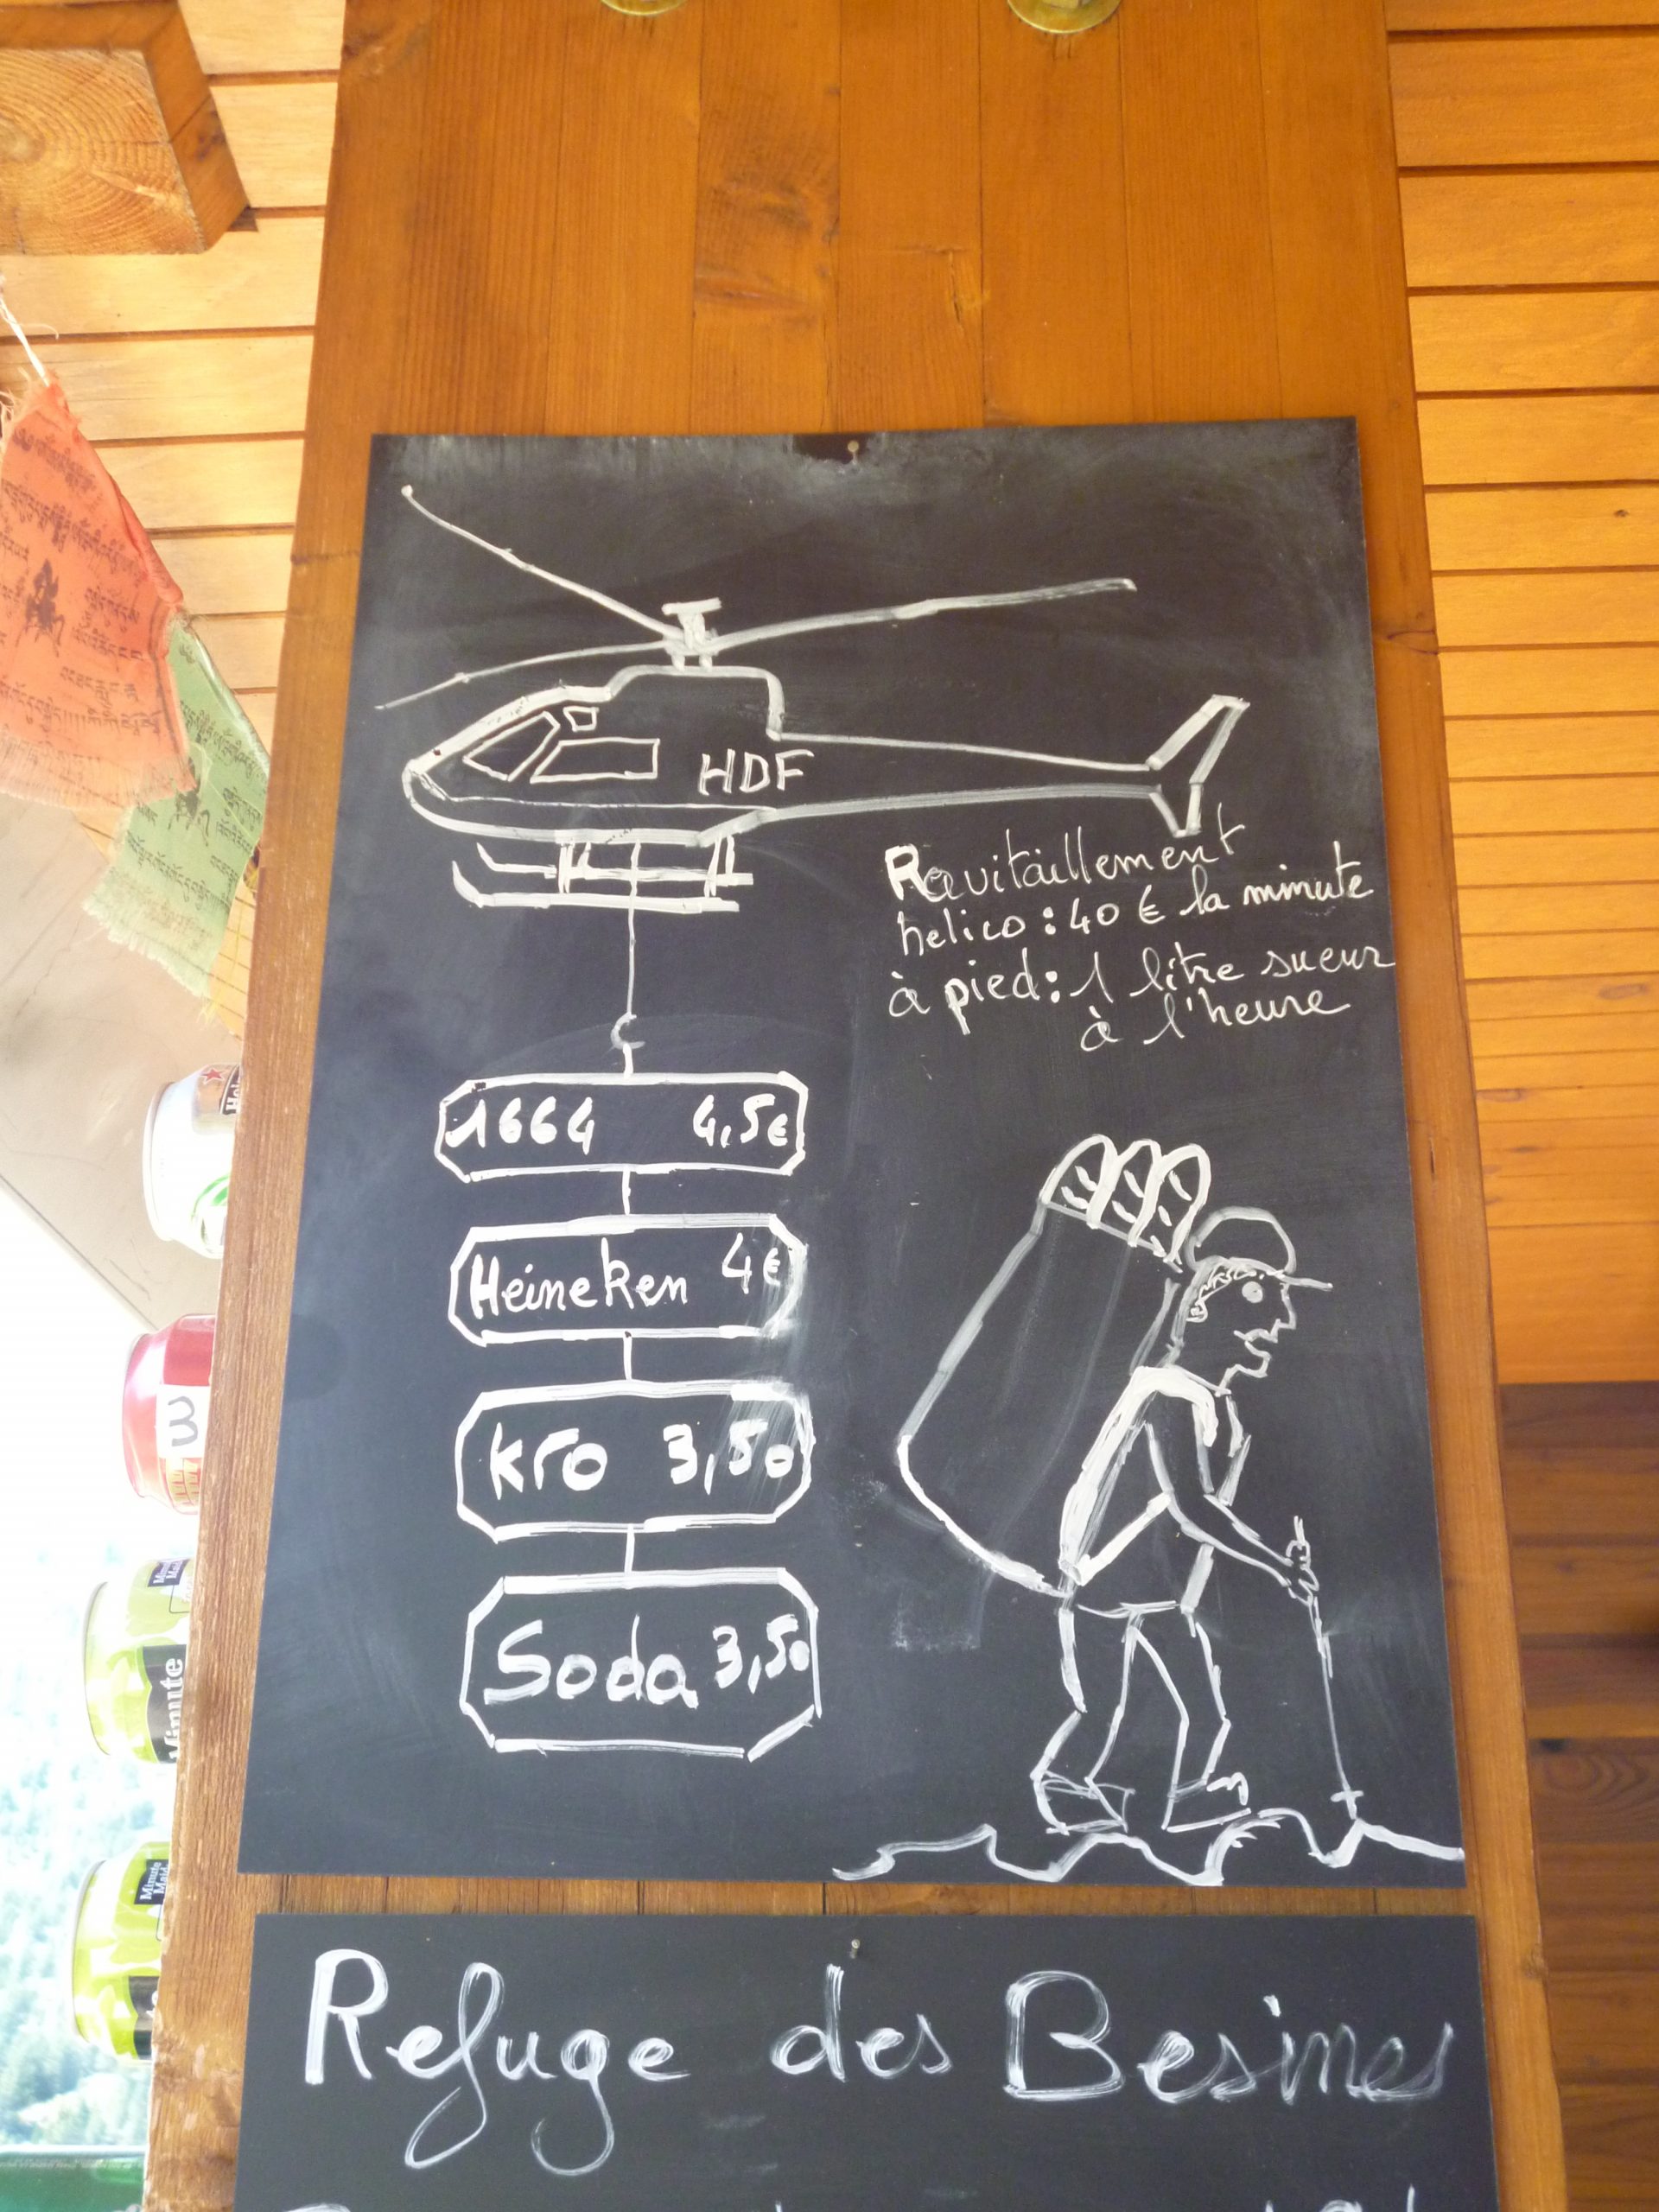 HDF
Ravitaillement
helico : 40 € la minute
à pied : 1 litre sueur
à l'heure
1664 4,5€
Heineken 4€
Kro 3,50
Soda 3,50
Refuge des Besines
Minute
Minute
Maid